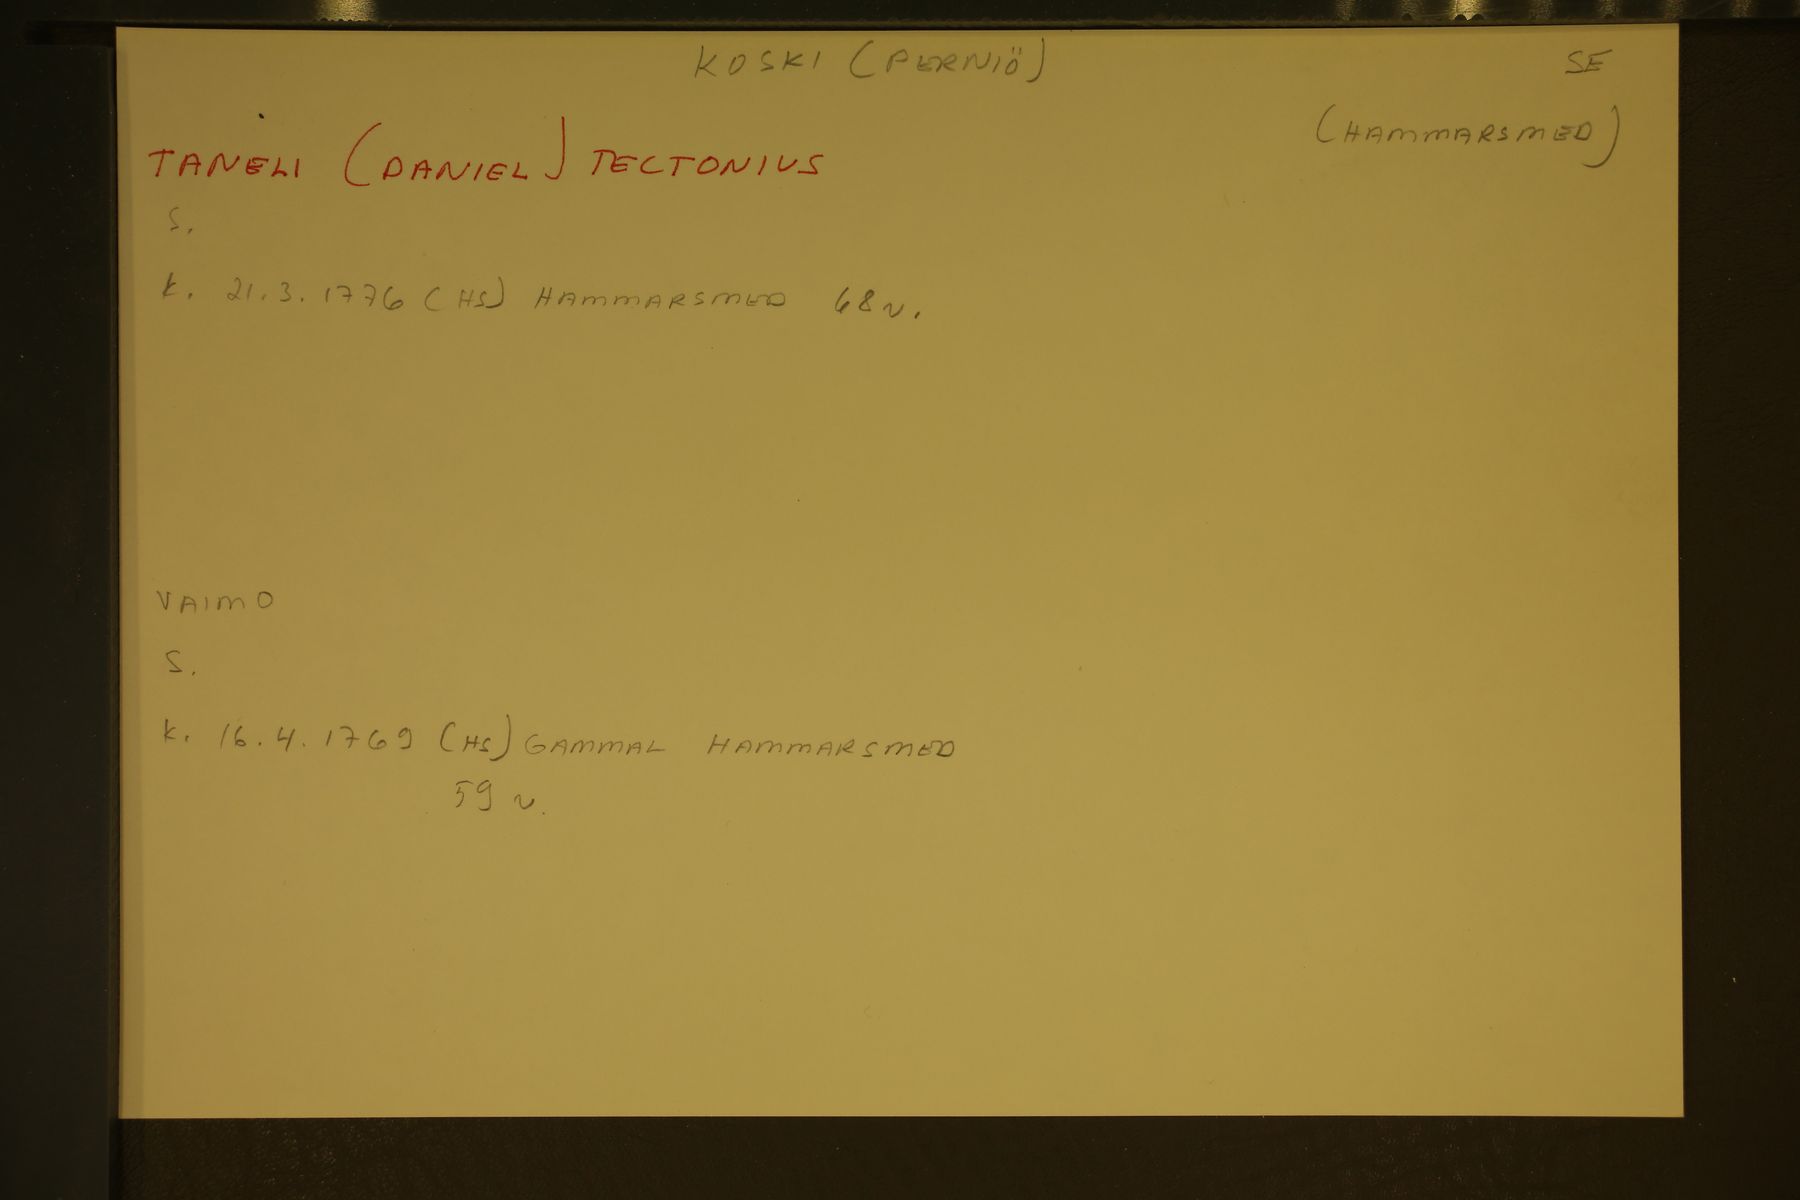 KOSKI (PERNIÖ) SE
(HAMMARSMED)
TANELI (DANIEL) TECTONIUS
S.
K. 21.3.1776 (HS) HAMMARSMED 68 v.
VAIMO
S.
K. 16.4.1769 (HS) GAMMAL HAMMARSMED
59 v.